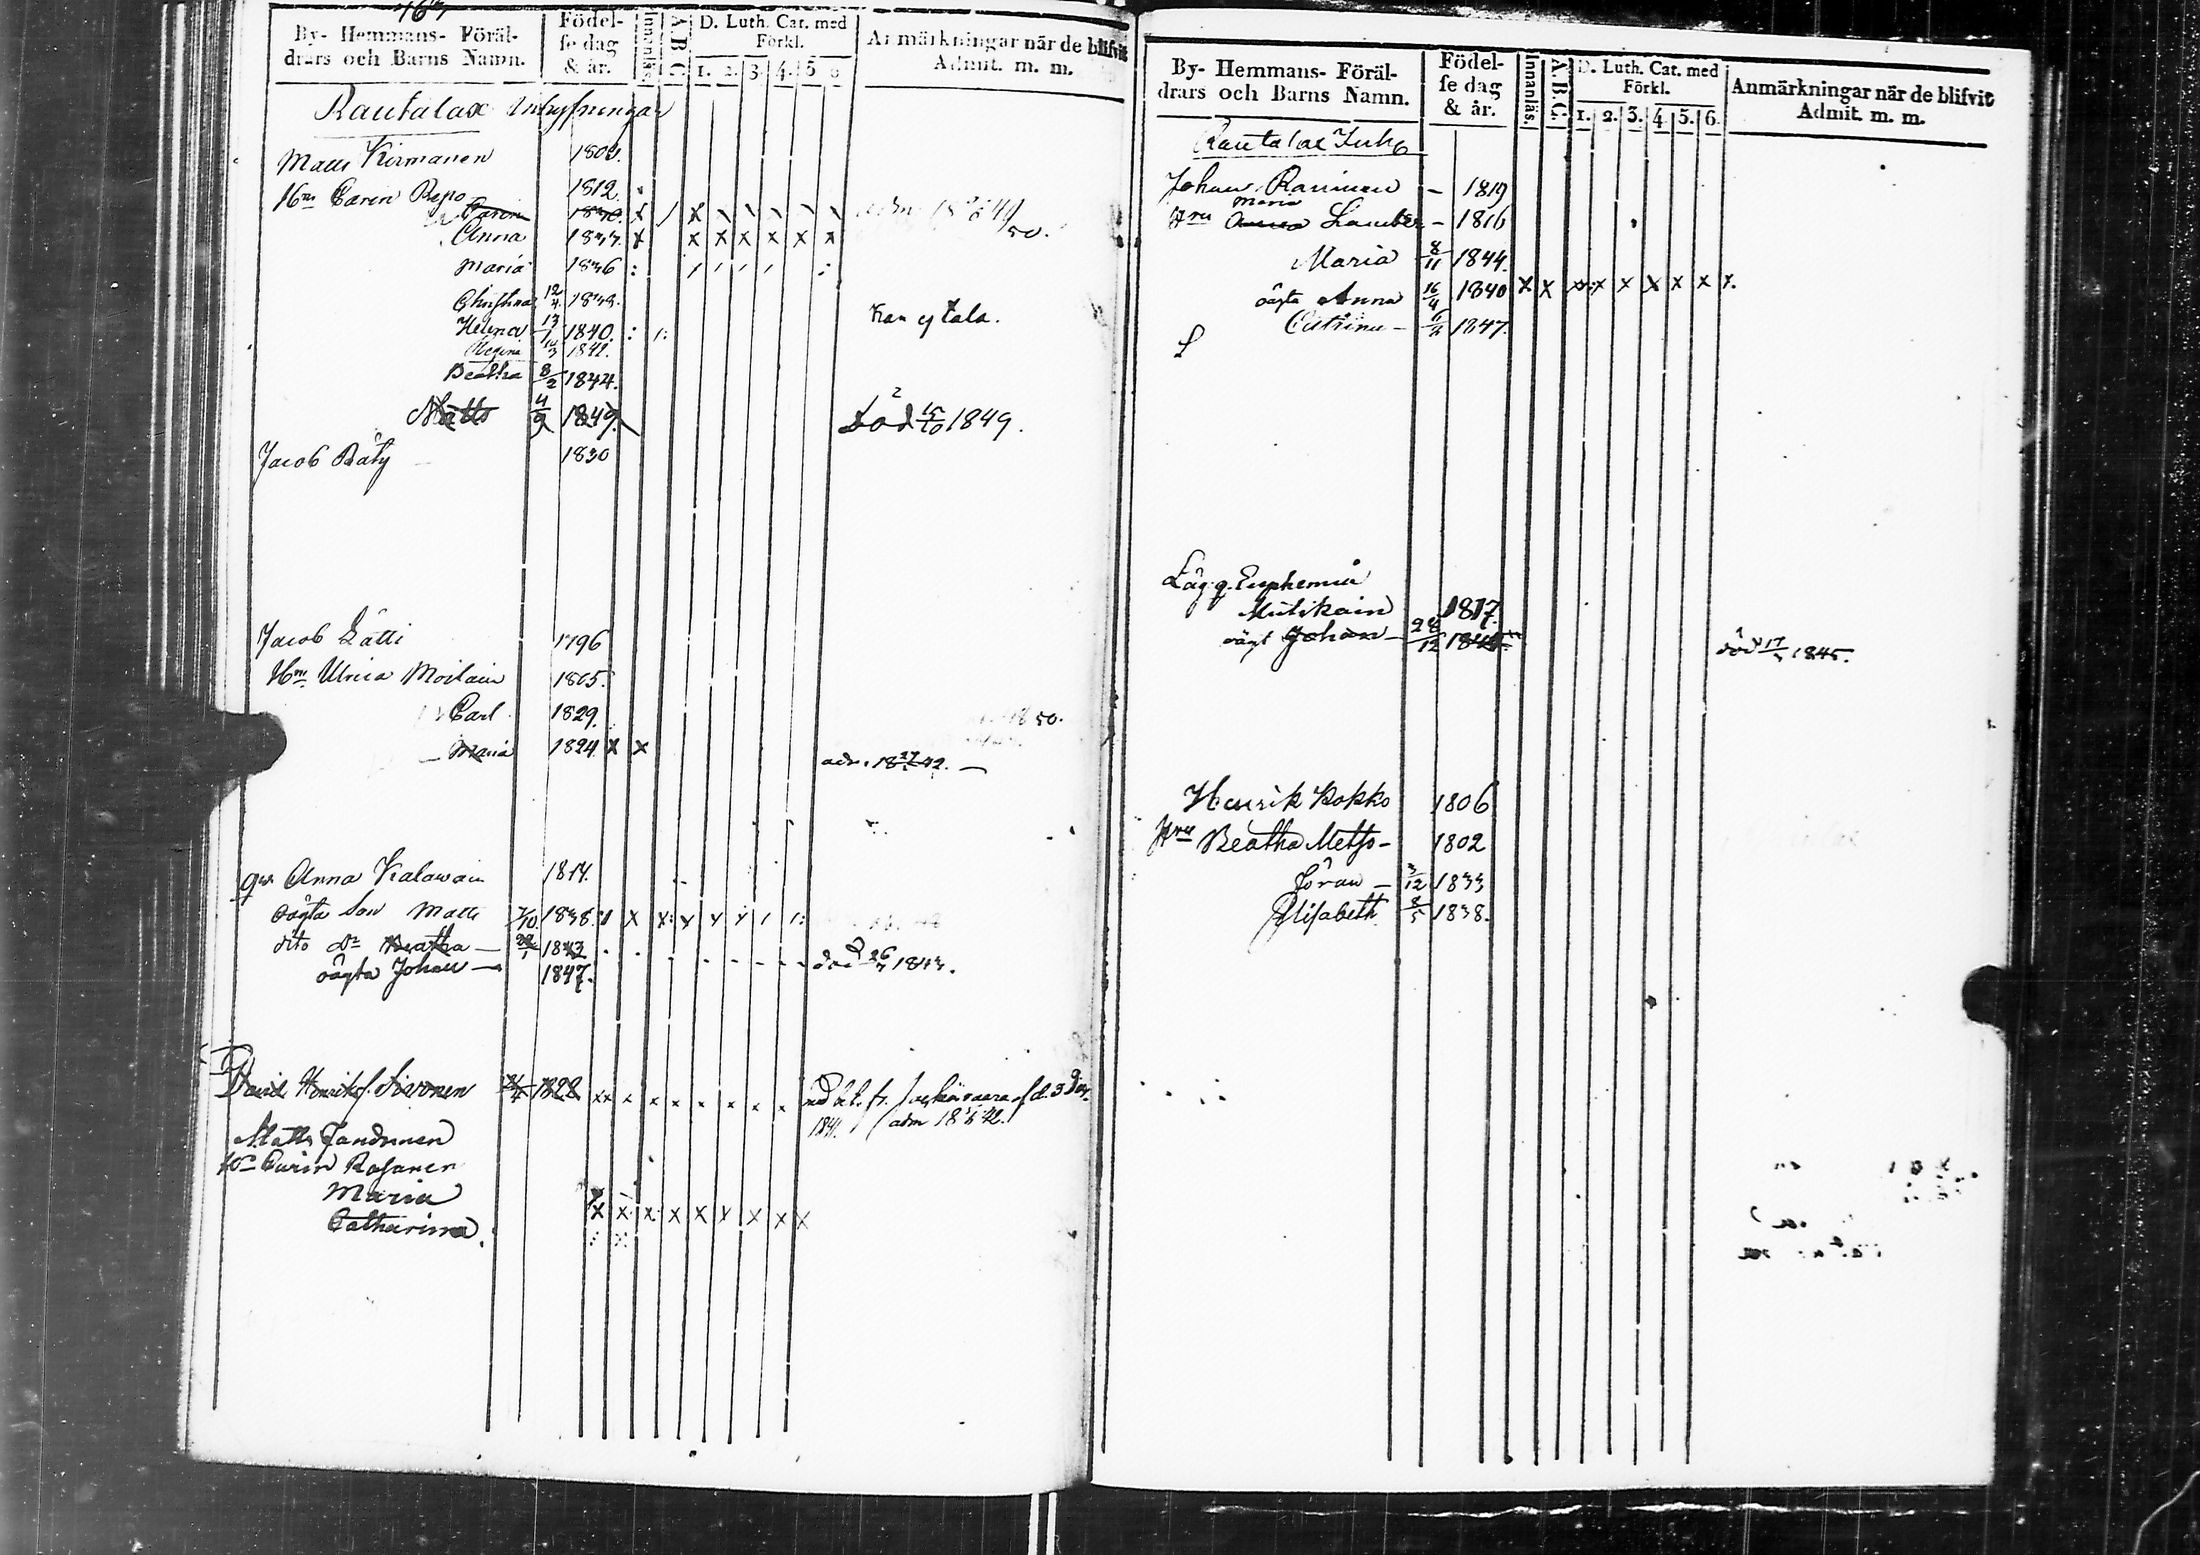 By- Hemmans- Föräl-
drars och Barns Namn.
Födel-
se dag
& år.
Innanläs.
A.B.C.
D. Luth. Cat. med
Förkl.
1. 2. 3. 4. 5 6
Anmärkningar när de blifvit
Admit. m. m.
Rautalax Inhysningar
Matts Kirmanen
Hu Carin Repo 1812
Carin 1830. x / x
Anna 1833. x x x x x x x 50.
Maria 1836 :
Christina 12/4
Helena 13/1 1840. : 1: Kan ej tala.
Regina 1842.
Beatha 8/2 1844.
Matts 4/9 1849. död 15/10 1849.
Jacob Räty 1830
Jacob Lätti 1796
Hu Ulrica Moilain 1805.
Carl 1829. 1850.
Maria 1824. x x
adm. 18 42.
Anna Kalawain 1814.
oägta Son Matts 7/10 1838. x x:
dito Dr Beatha 1843
död 26 1843.
oägta Johan 1847.
David Henriks. Sironen 1828
1841. adm 18 42.
Matts Jandunen
Hu Carin Rosanen
Maria
Catharina x x x x x x x x x
By- Hemmans- Föräl-
drars och Barns Namn.
Födel-
se dag
& år.
Innanläs.
A.B.C.
D. Luth. Cat. med
Förkl.
1. 2. 3. 4. 5. 6.
Anmärkningar när de blifvit
Admit. m. m.
Rautalax Inh
Johan Raninen – 1819
Maria
Hru Anna – 1816
Maria 8/11 1844.
oägta Anna 16/4 1840 x x x x x x x x
Catrina – 6/2 1847.
Läg. q. Euphemia
Mutikain 1817.
oägt Johan – 28/12
död 17 1845.
Henrik Kokko 1806
Hru Beatha Metso – 1802
Göran – 3/12 1833
Elisabeth 8/5 1838.